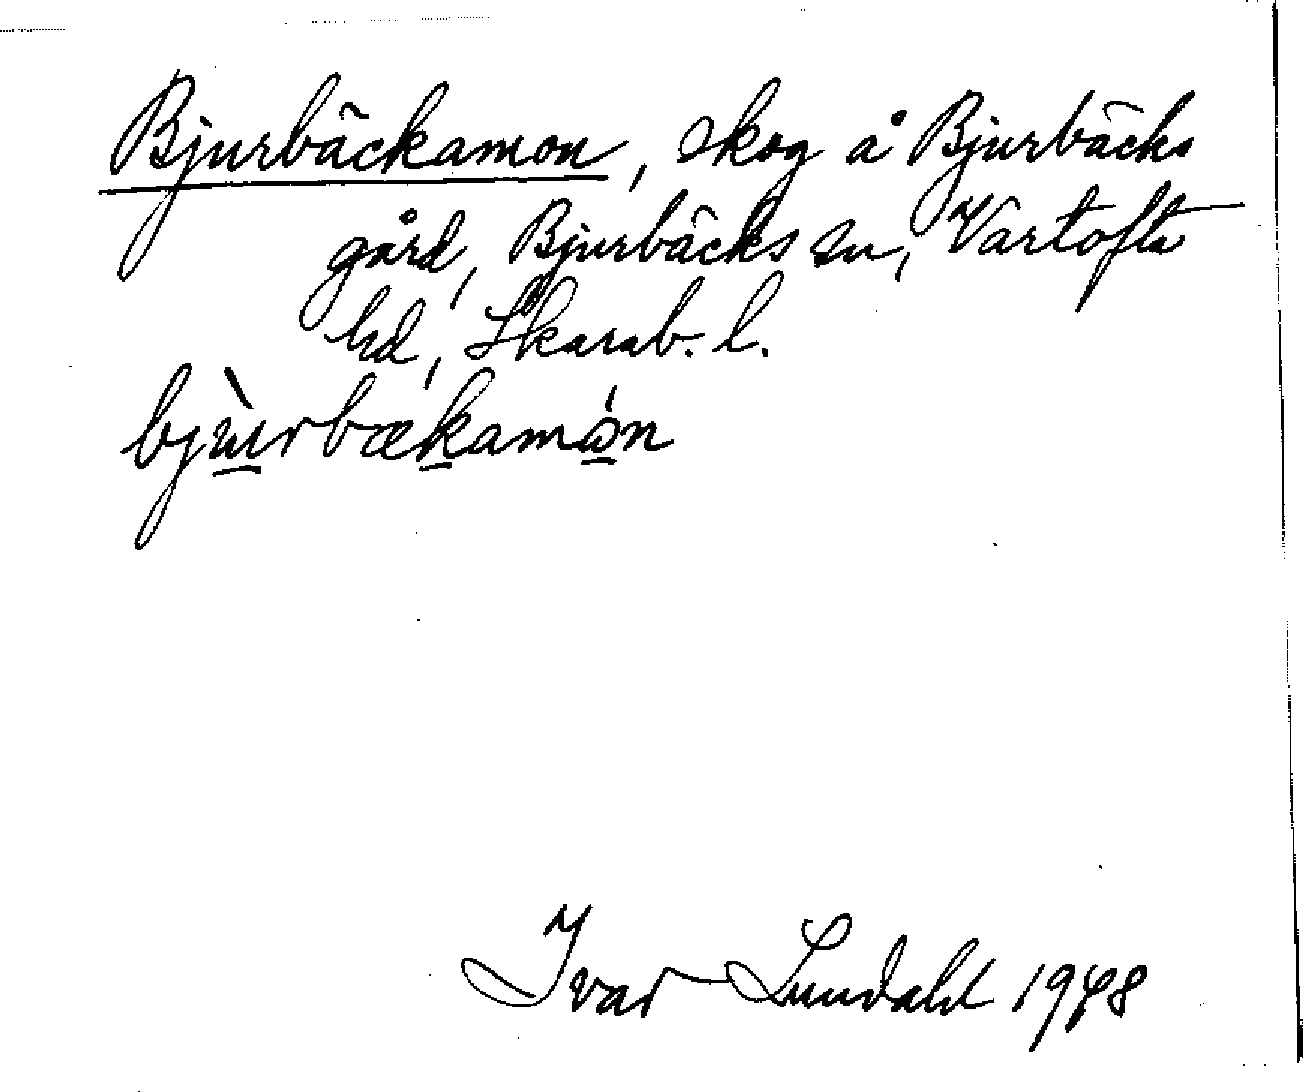 Bjurbäckamon, skog å Bjurbäcks
gård, Bjurbäcks sn, Vartofta
hd, Skarab. l.
bjùrbækamón
Ivar Lundahl 1948